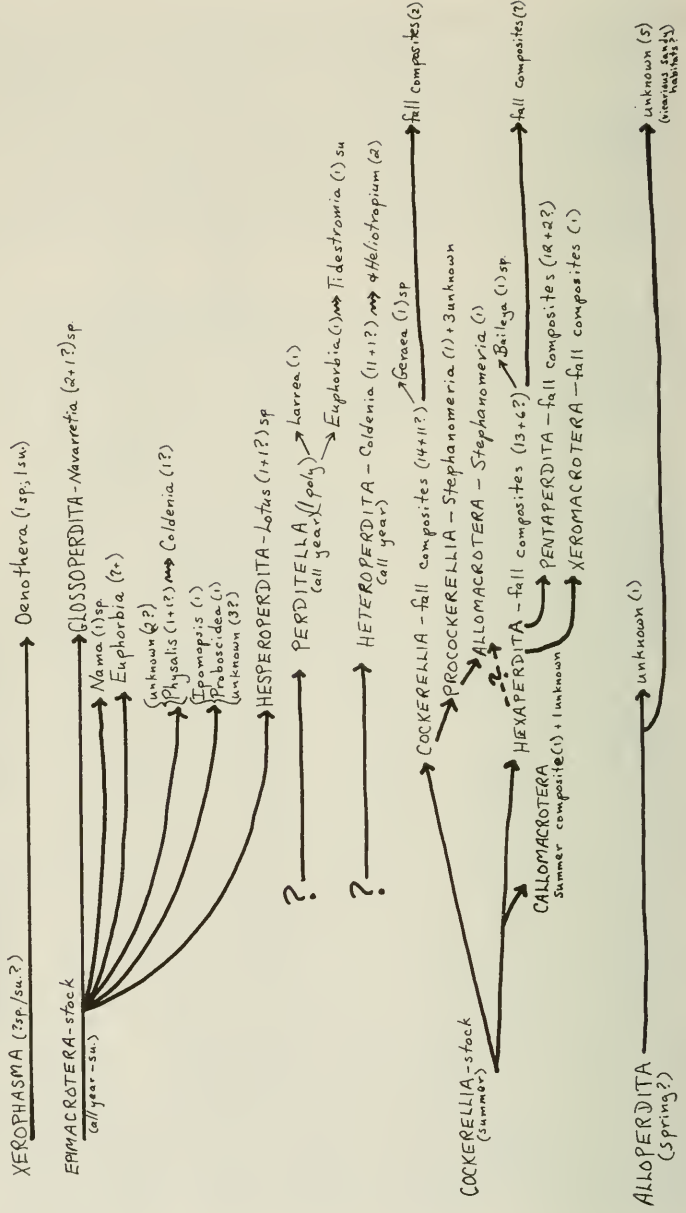 XEROPHASMA (?sp./su.?)
Oenothera (1sp; 1su.)
EPIMACROTERA-stock
(all year-su.)
GLOSSOPERDITA-Navarretia (2+1?)sp
Nama (1)sp.
Euphorbia (2+)
unknown (2?)
Physalis (1+1?) Coldenia (1?)
Ipomopsis (1)
Proboscidea (1)
unknown (3?)
HESPEROPERDITA-Lotus (1+1?)sp
? PERDITELLA (poly)
(all year)
Larrea (1)
Euphorbia (1) Tidestromia (1) su
? HETEROPERDITA-Coldenia (11+1?) & Heliotropium (2)
(all year)
COCKERELLIA-stock
(summer)
COCKERELLIA-fall composites (14+11?)
Geraea (1)sp
fall composites (2)
PROCOCKERELLIA-Stephanomeria (1)+3unknown
ALLOMACROTERA-Stephanomeria (1)
--?--
HEXAPERDITA-fall composites (13+6?)
Baileya (1)sp.
fall composites (?)
PENTAPERDITA-fall composites (12+2?)
XEROMACROTERA-fall composites (1)
CALLOMACROTERA
summer composite(1)+1unknown
ALLOPERDITA
(spring?)
unknown (1)
unknown (5)
(vicarious sandy
habitats?)